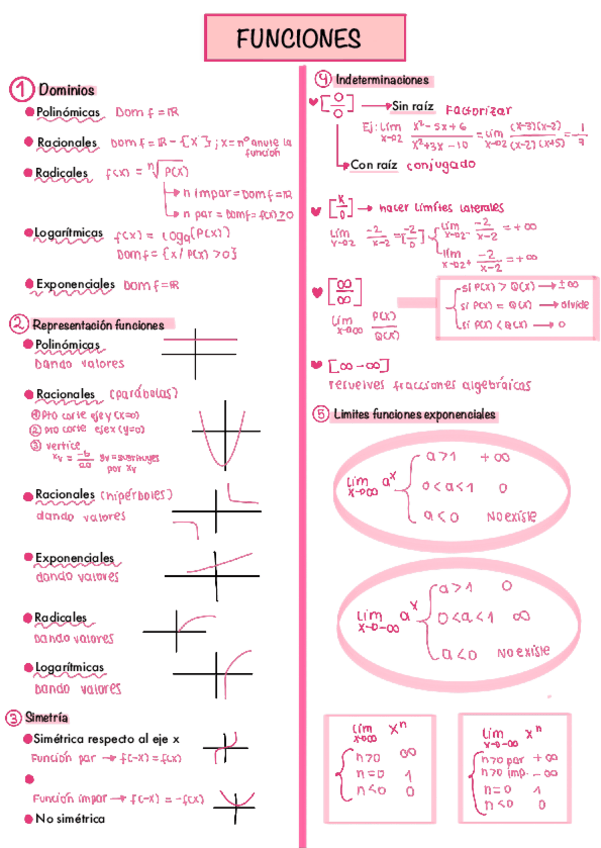 FUNCIONES
1 Dominios
Polinómicas Dom f = ℝ
Racionales Dom f = ℝ - {x}; x = nº anule la
función
Radicales f(x) = ⁿ√P(x)
n impar = Dom f = ℝ
n par = Dom f = f(x) ≥ 0
Logarítmicas f(x) = loga(P(x))
Dom f = {x / P(x) > 0}
Exponenciales Dom f = ℝ
2 Representación funciones
Polinómicas
Dando valores
Racionales (parábolas)
① Pto corte eje y (x=0)
② Pto corte eje x (y=0)
③ vértice
xᵥ = -b/2a yᵥ = sustituyes
por xᵥ
Racionales (hipérboles)
dando valores
Exponenciales
dando valores
Radicales
Dando valores
Logarítmicas
Dando valores
3 Simetría
Simétrica respecto al eje x
Función par → f(-x) = f(x)
Función impar → f(-x) = -f(x)
No simétrica
4 Indeterminaciones
[0/0] → Sin raíz Factorizar
Ej: lim x→2 x²-5x+6 / x²+3x-10 = lim x→2 (x-3)(x-2) / (x-2)(x+5) = -1/7
Con raíz conjugado
[k/0] → hacer límites laterales
lim x→2 -2/x-2 = [-2/0] lim x→2⁻ -2/x-2 = +∞
lim x→2⁺ -2/x-2 = +∞
[∞/∞]
lim x→∞ P(x)/Q(x)
si P(x) > Q(x) → ±∞
si P(x) = Q(x) → divide
si P(x) < Q(x) → 0
[∞-∞]
resuelves fracciones algebráicas
5 Limites funciones exponenciales
lim x→∞ aˣ
a>1 +∞
0<a<1 0
a<0 No existe
lim x→-∞ aˣ
a>1 0
0<a<1 ∞
a<0 No existe
lim x→∞ xⁿ
n>0 ∞
n=0 1
n<0 0
lim x→-∞ xⁿ
n>0 par +∞
n>0 imp. -∞
n=0 1
n<0 0